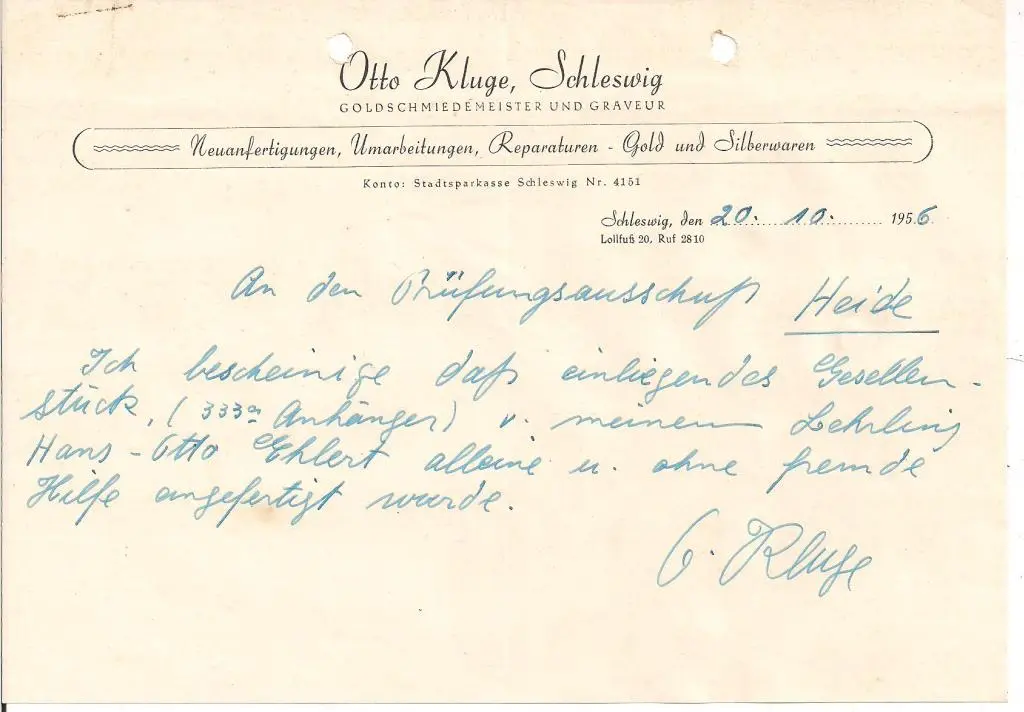 Otto Kluge, Schleswig
GOLDSCHMIEDEMEISTER UND GRAVEUR
Neuanfertigungen, Umarbeitungen, Reparaturen - Gold und Silberwaren
Konto: Stadtsparkasse Schleswig Nr. 4151
Schleswig, den 20. 10. 1956
Lollfuß 20, Ruf 2810
An den Prüfungsausschuß Heide
Ich bescheinige daß einliegendes Gesellen-
stück, (333er Anhänger) v. meinem Lehrling
Hans-Otto Ehlert alleine u. ohne fremde
Hilfe angefertigt wurde.
O. Kluge